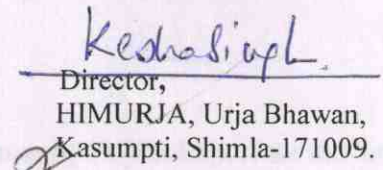 Director,
HIMURJA, Urja Bhawan,
Kasumpti, Shimla-171009.